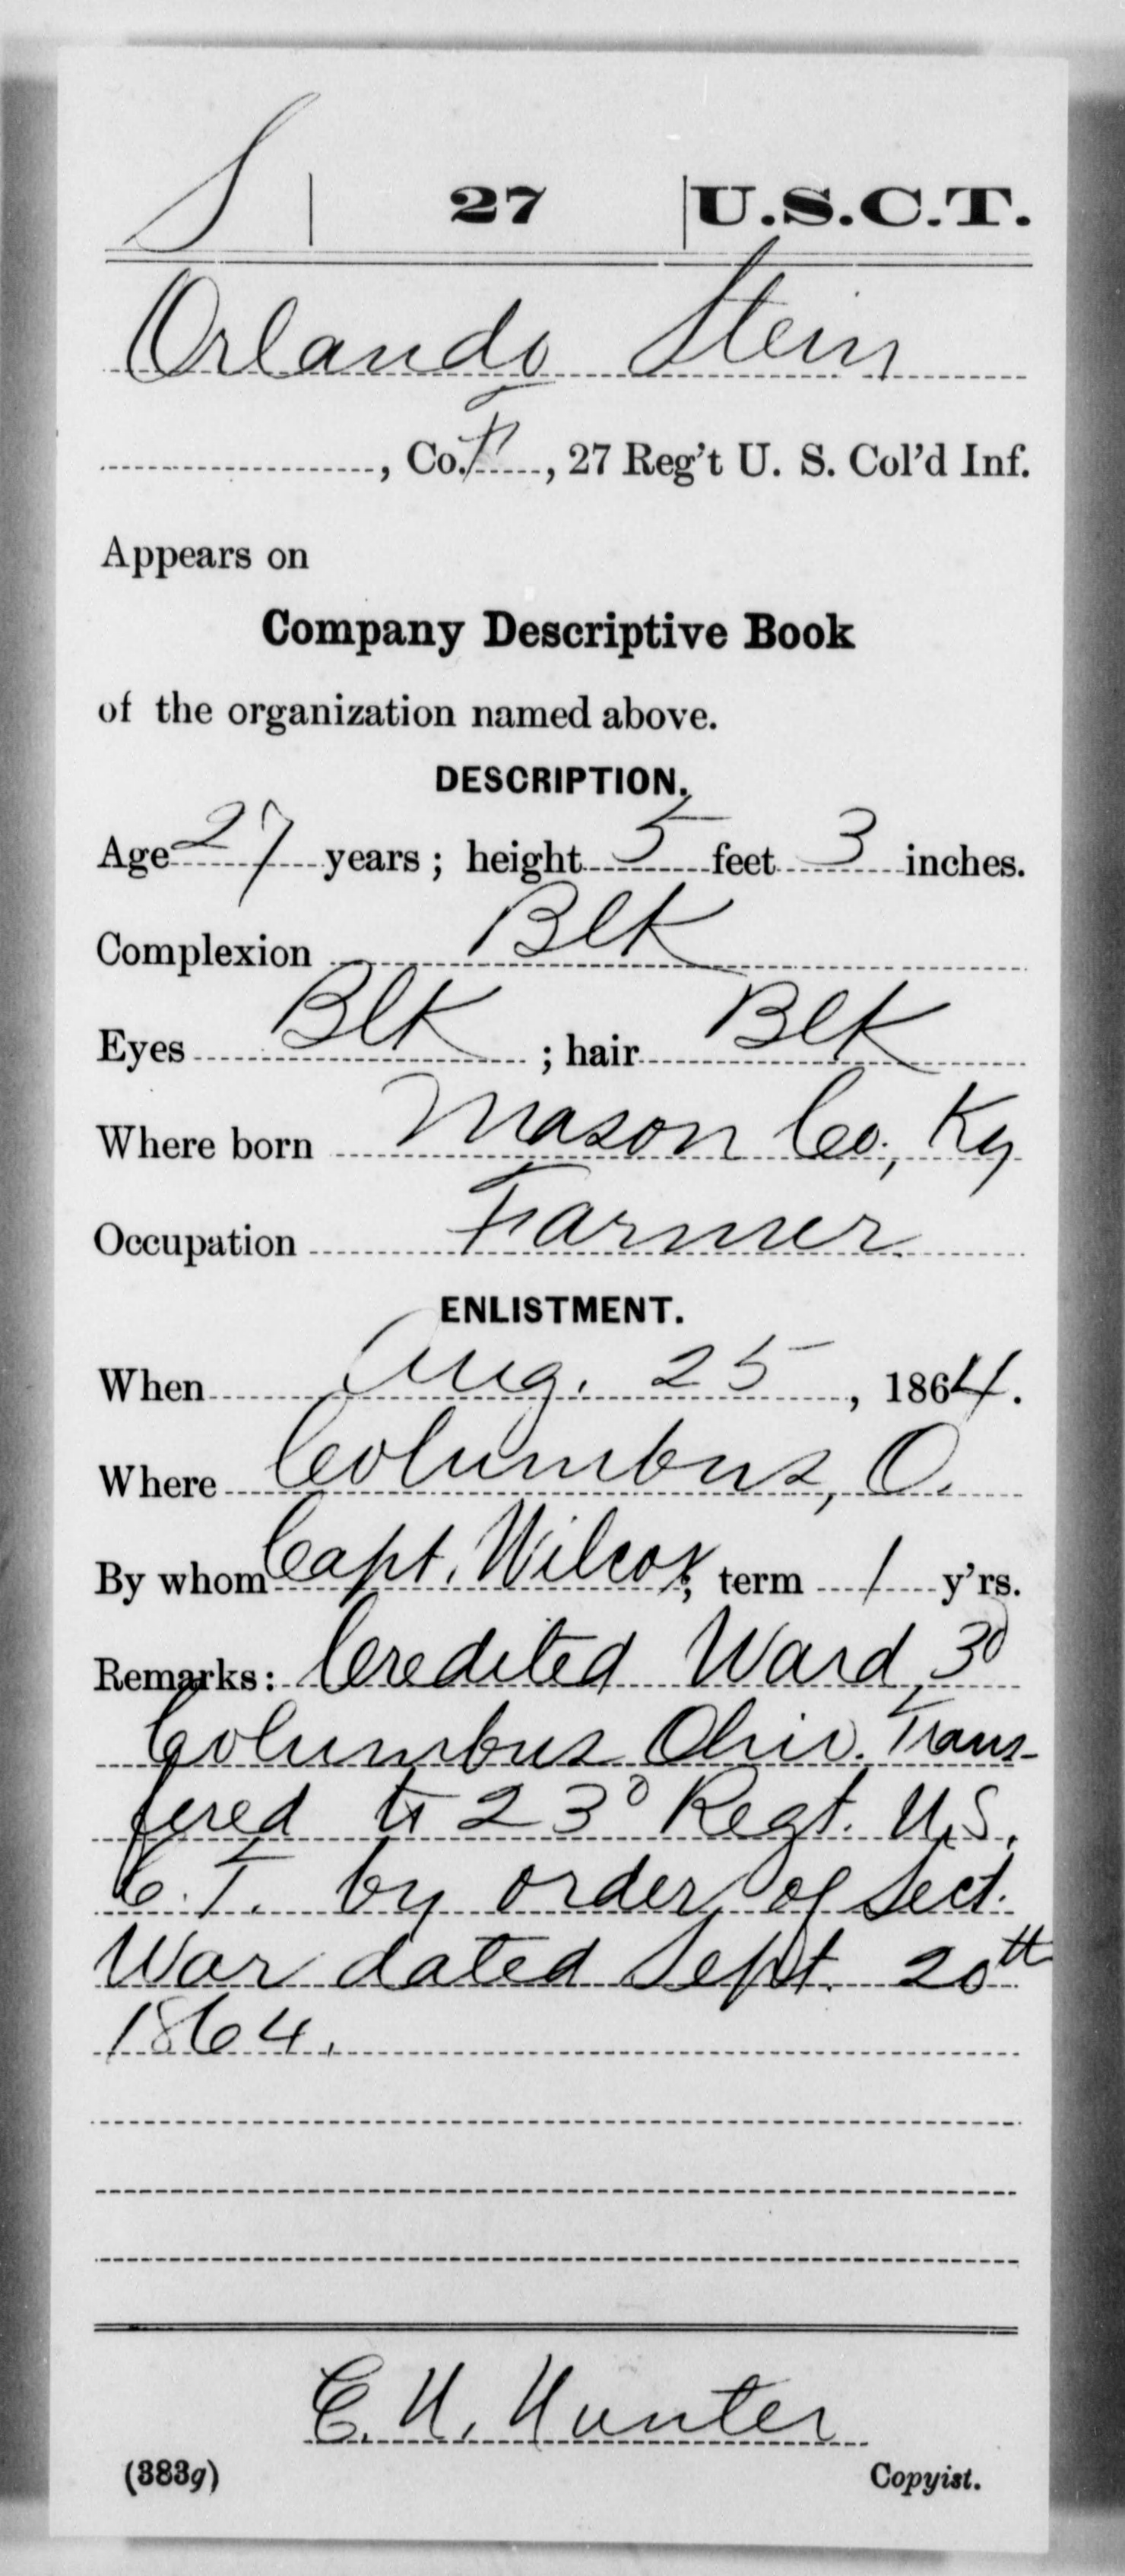 S | 27 | U.S.C.T.
Orlando Stein
, Co. F, 27 Reg't U. S. Col'd Inf.
Appears on
Company Descriptive Book
of the organization named above.
DESCRIPTION.
Age 27 years; height 5 feet 3 inches.
Complexion Blk
Eyes Blk ; hair Blk
Where born Mason Co., Ky
Occupation Farmer
ENLISTMENT.
When Aug. 25, 1864.
Where Columbus, O.
By whom Capt. Wilcox; term 1 y'rs.
Remarks: Credited Ward 3d
Columbus Ohio. Trans-
fered to 23d Regt. U.S.
C.T. by order of Sect.
War dated Sept. 20th
1864.
C. H. Hunter
(383g) Copyist.